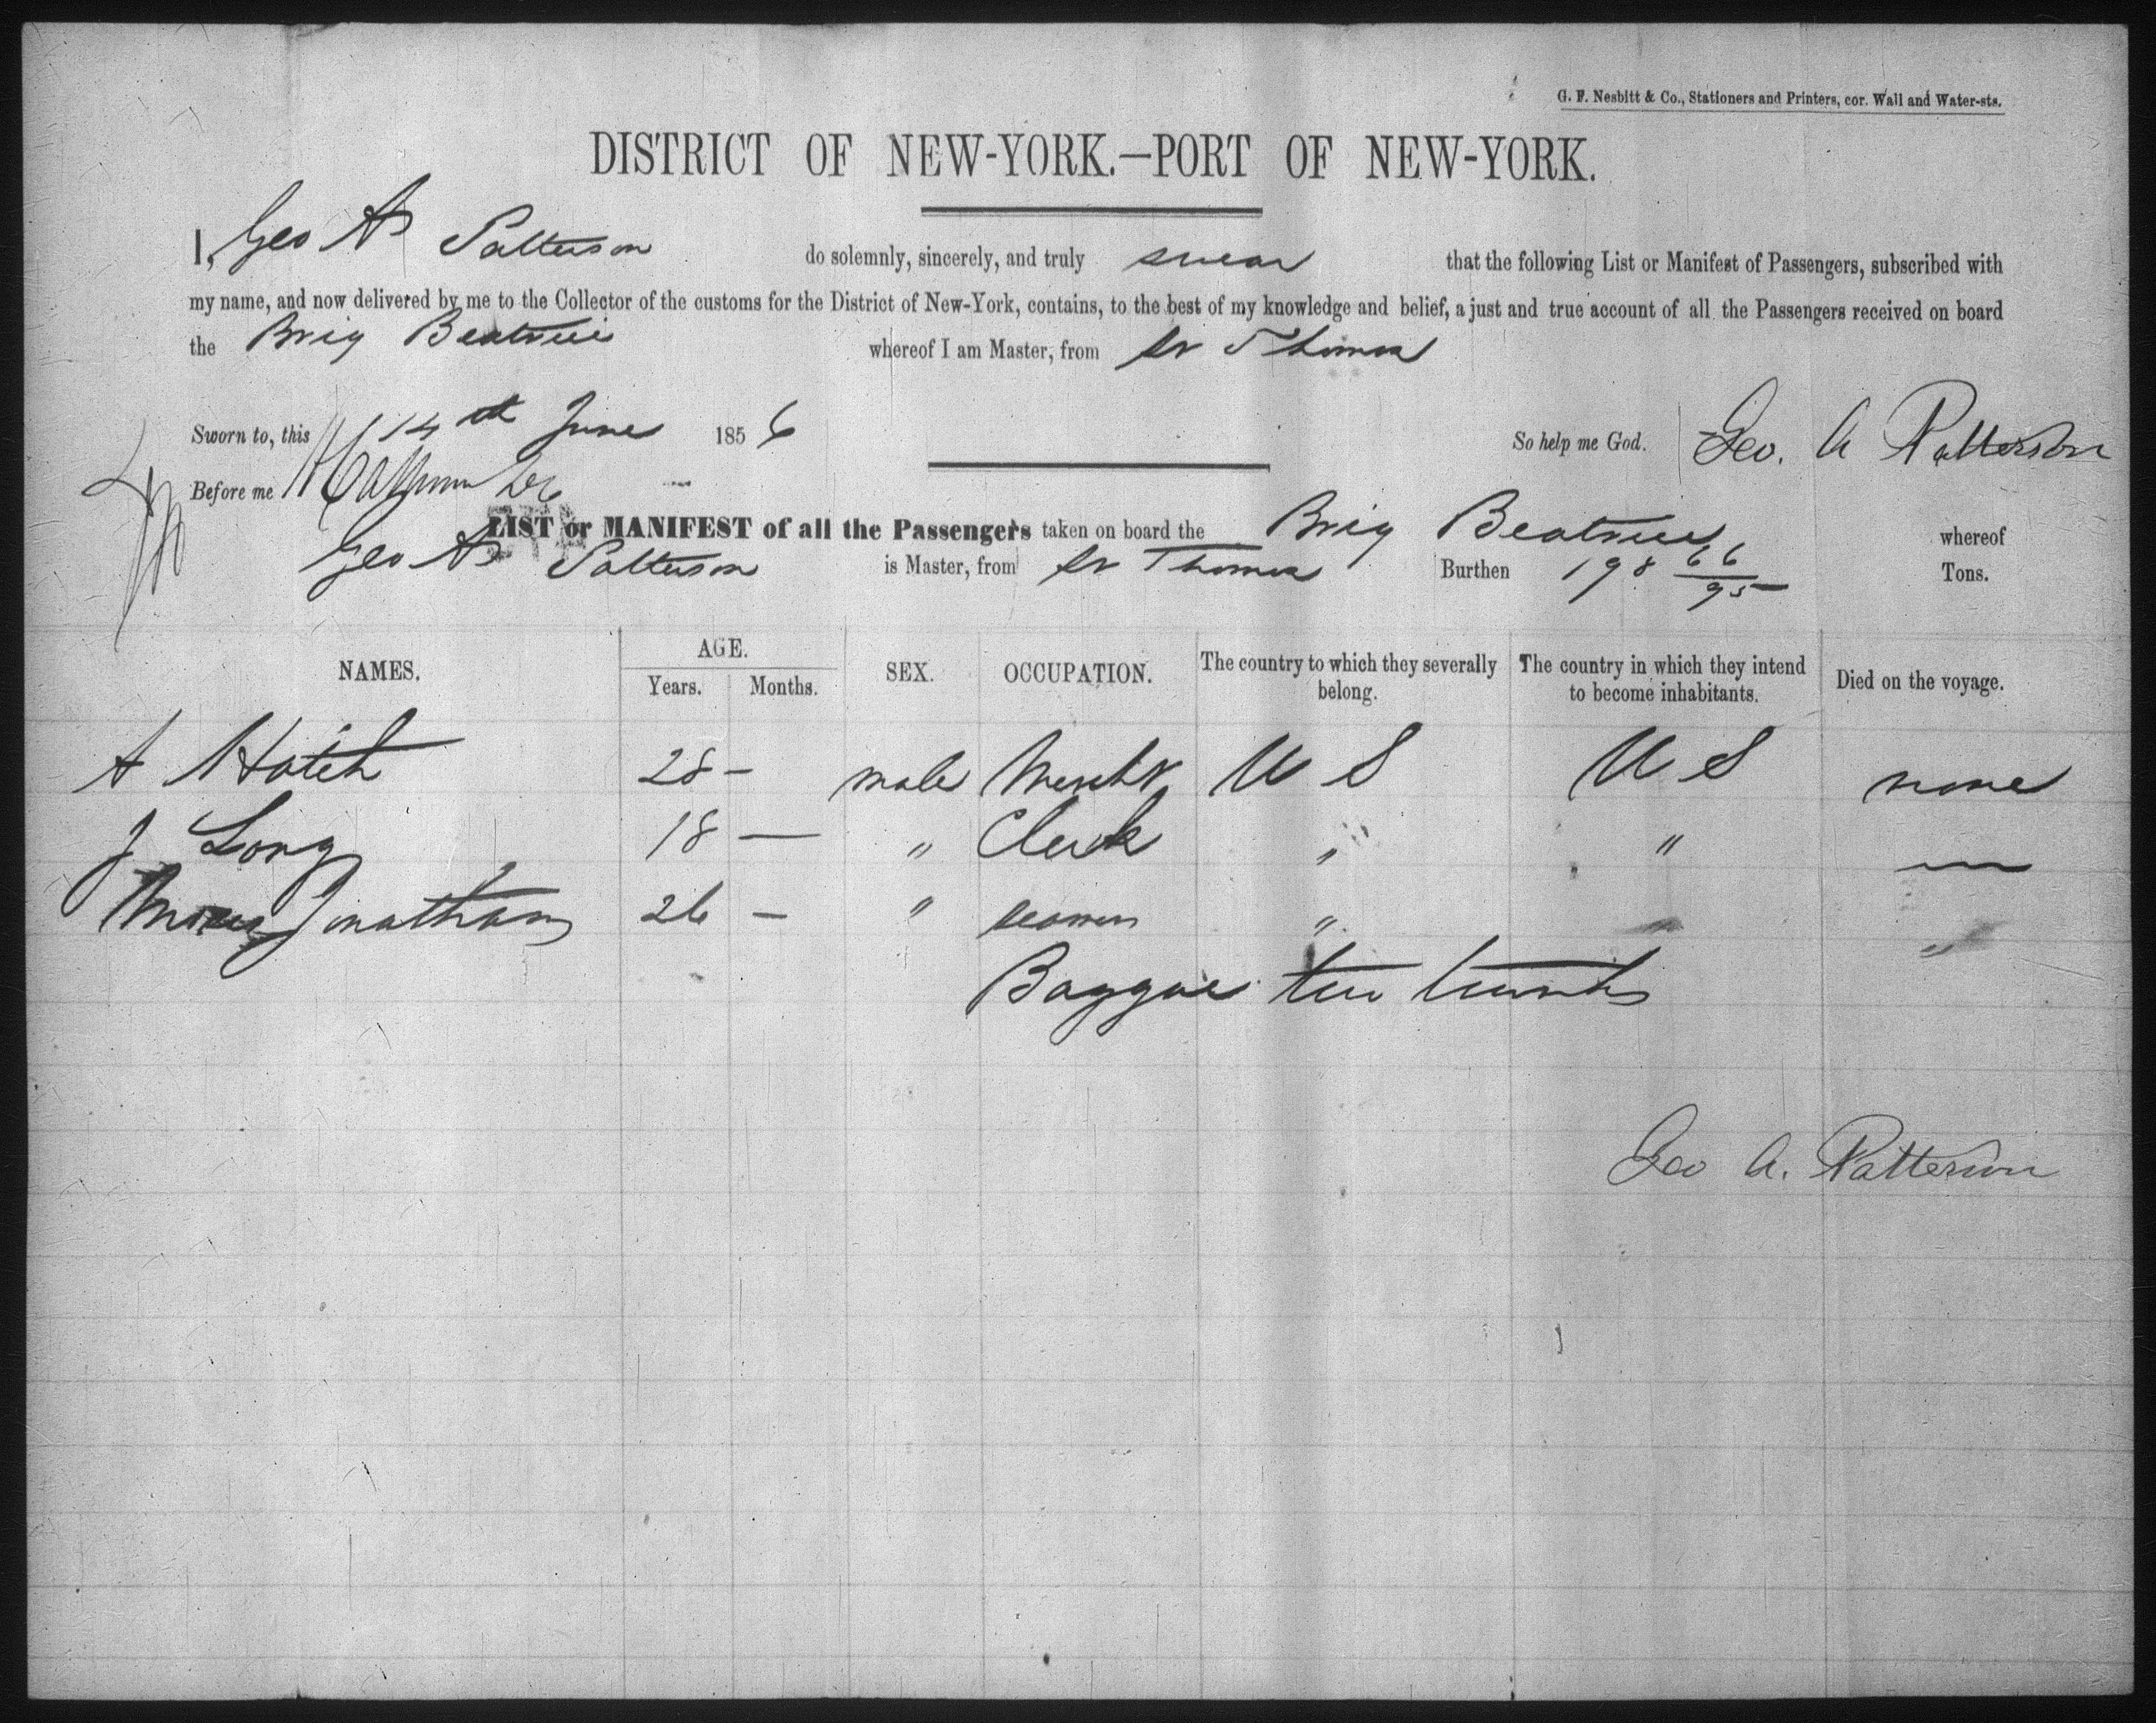 G. F. Nesbitt & Co., Stationers and Printers, cor. Wall and Water-sts.
DISTRICT OF NEW-YORK.—PORT OF NEW-YORK.
I, Geo A Patterson do solemnly, sincerely, and truly swear that the following List or Manifest of Passengers, subscribed with
my name, and now delivered by me to the Collector of the customs for the District of New-York, contains, to the best of my knowledge and belief, a just and true account of all the Passengers received on board
the Brig Beatrice whereof I am Master, from St Thomas
Sworn to, this 14th June 1856 So help me God. Geo. A Patterson
Before me
LIST or MANIFEST of all the Passengers taken on board the Brig Beatrice whereof
Geo A Patterson is Master, from St Thomas Burthen 198 66/95 Tons.
NAMES. AGE. Years. Months. SEX. OCCUPATION. The country to which they severally belong. The country in which they intend to become inhabitants. Died on the voyage.
A Hatch 28 – male Mercht U S U S none
J Long 18 — " Clerk " " —
Jonathan 26 – " seaman " "
Baggae two trunks
Geo A. Patterson